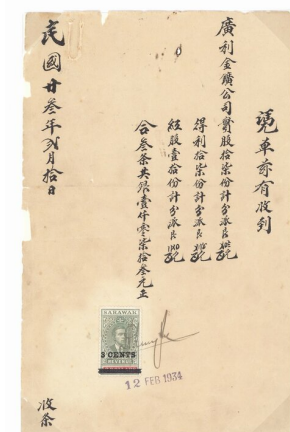 憑單亲有收到
廣利金鑛公司實股拾柒份計分派艮
得利拾柒份計分派艮
紅股壹拾份計分派艮
合叁条共銀壹仟零柒拾叁元正
民國廿叁年弍月拾日
收条
SARAWAK
3 CENTS
REVENUE
12 FEB 1934